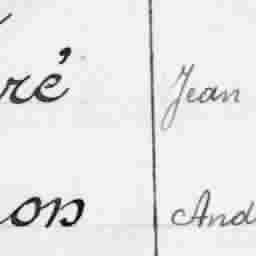 ré Jean
on And